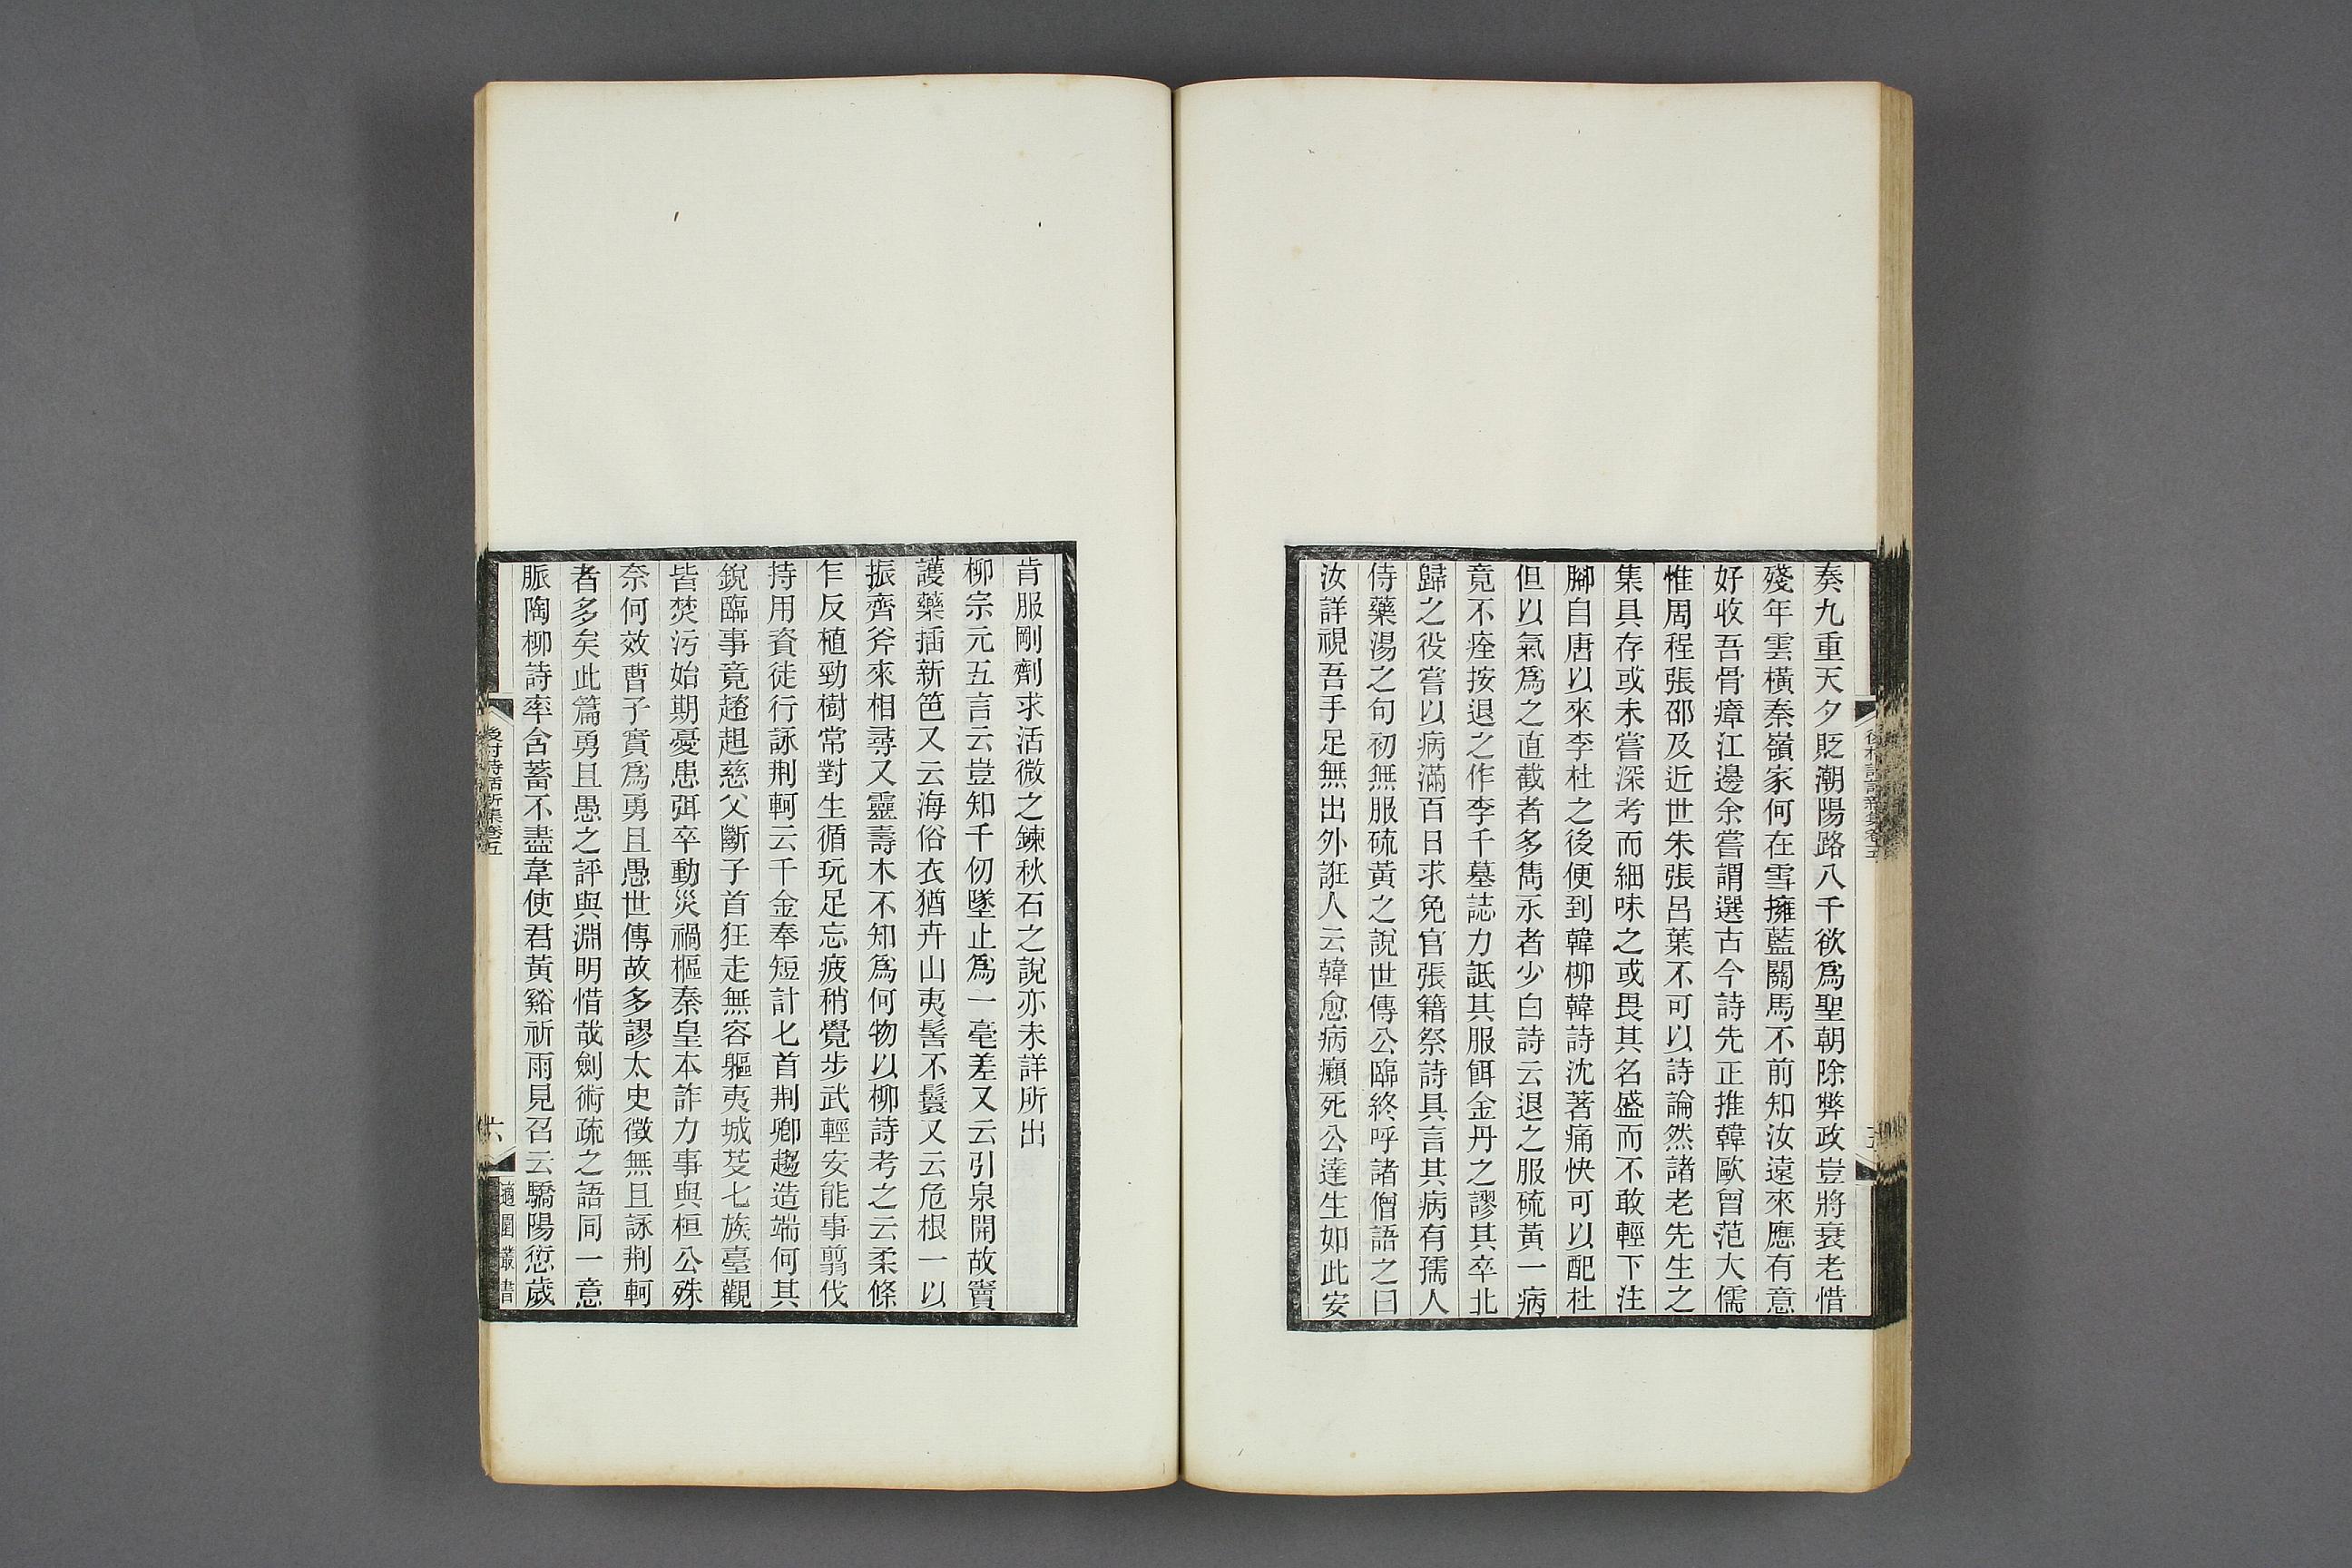 奏九重天夕貶潮陽路八千欲爲聖朝除弊政豈將衰老惜
殘年雲橫秦嶺家何在雪擁藍關馬不前知汝遠來應有意
好收吾骨瘴江邊余嘗謂選古今詩先正推韓歐曾范大儒
惟周程張邵及近世朱張呂葉不可以詩論然諸老先生之
集具存或未嘗深考而細味之或畏其名盛而不敢輕下注
腳自唐以來李杜之後便到韓柳韓詩沈著痛快可以配杜
但以氣爲之直截者多雋永者少白詩云退之服硫黃一病
竟不痊按退之作李千墓誌力詆其服餌金丹之謬其卒北
歸之役嘗以病滿百日求免官張籍祭詩具言其病有孺人
侍藥湯之句初無服硫黃之說世傳公臨終呼諸僧語之曰
汝詳視吾手足無出外誑人云韓愈病癩死公達生如此安
後村詩話新集卷五
五
肯服剛劑求活微之鍊秋石之說亦未詳所出
柳宗元五言云豈知千仞墜止爲一毫差又云引泉開故竇
護藥插新笆又云海俗衣猶卉山夷髻不鬟又云危根一以
振齊斧來相尋又靈壽木不知爲何物以柳詩考之云柔條
乍反植勁樹常對生循玩足忘疲稍覺步武輕安能事翦伐
持用資徒行詠荆軻云千金奉短計匕首荆卿趨造端何其
銳臨事竟趑趄慈父斷子首狂走無容軀夷城芟七族臺觀
皆焚污始期憂患弭卒動災禍樞秦皇本詐力事與桓公殊
奈何效曹子實爲勇且愚世傳故多謬太史徵無且詠荆軻
者多矣此篇勇且愚之評與淵明惜哉劍術疏之語同一意
脈陶柳詩率含蓄不盡韋使君黃谿祈雨見召云驕陽愆歲
後村詩話新集卷五
六
適園叢書